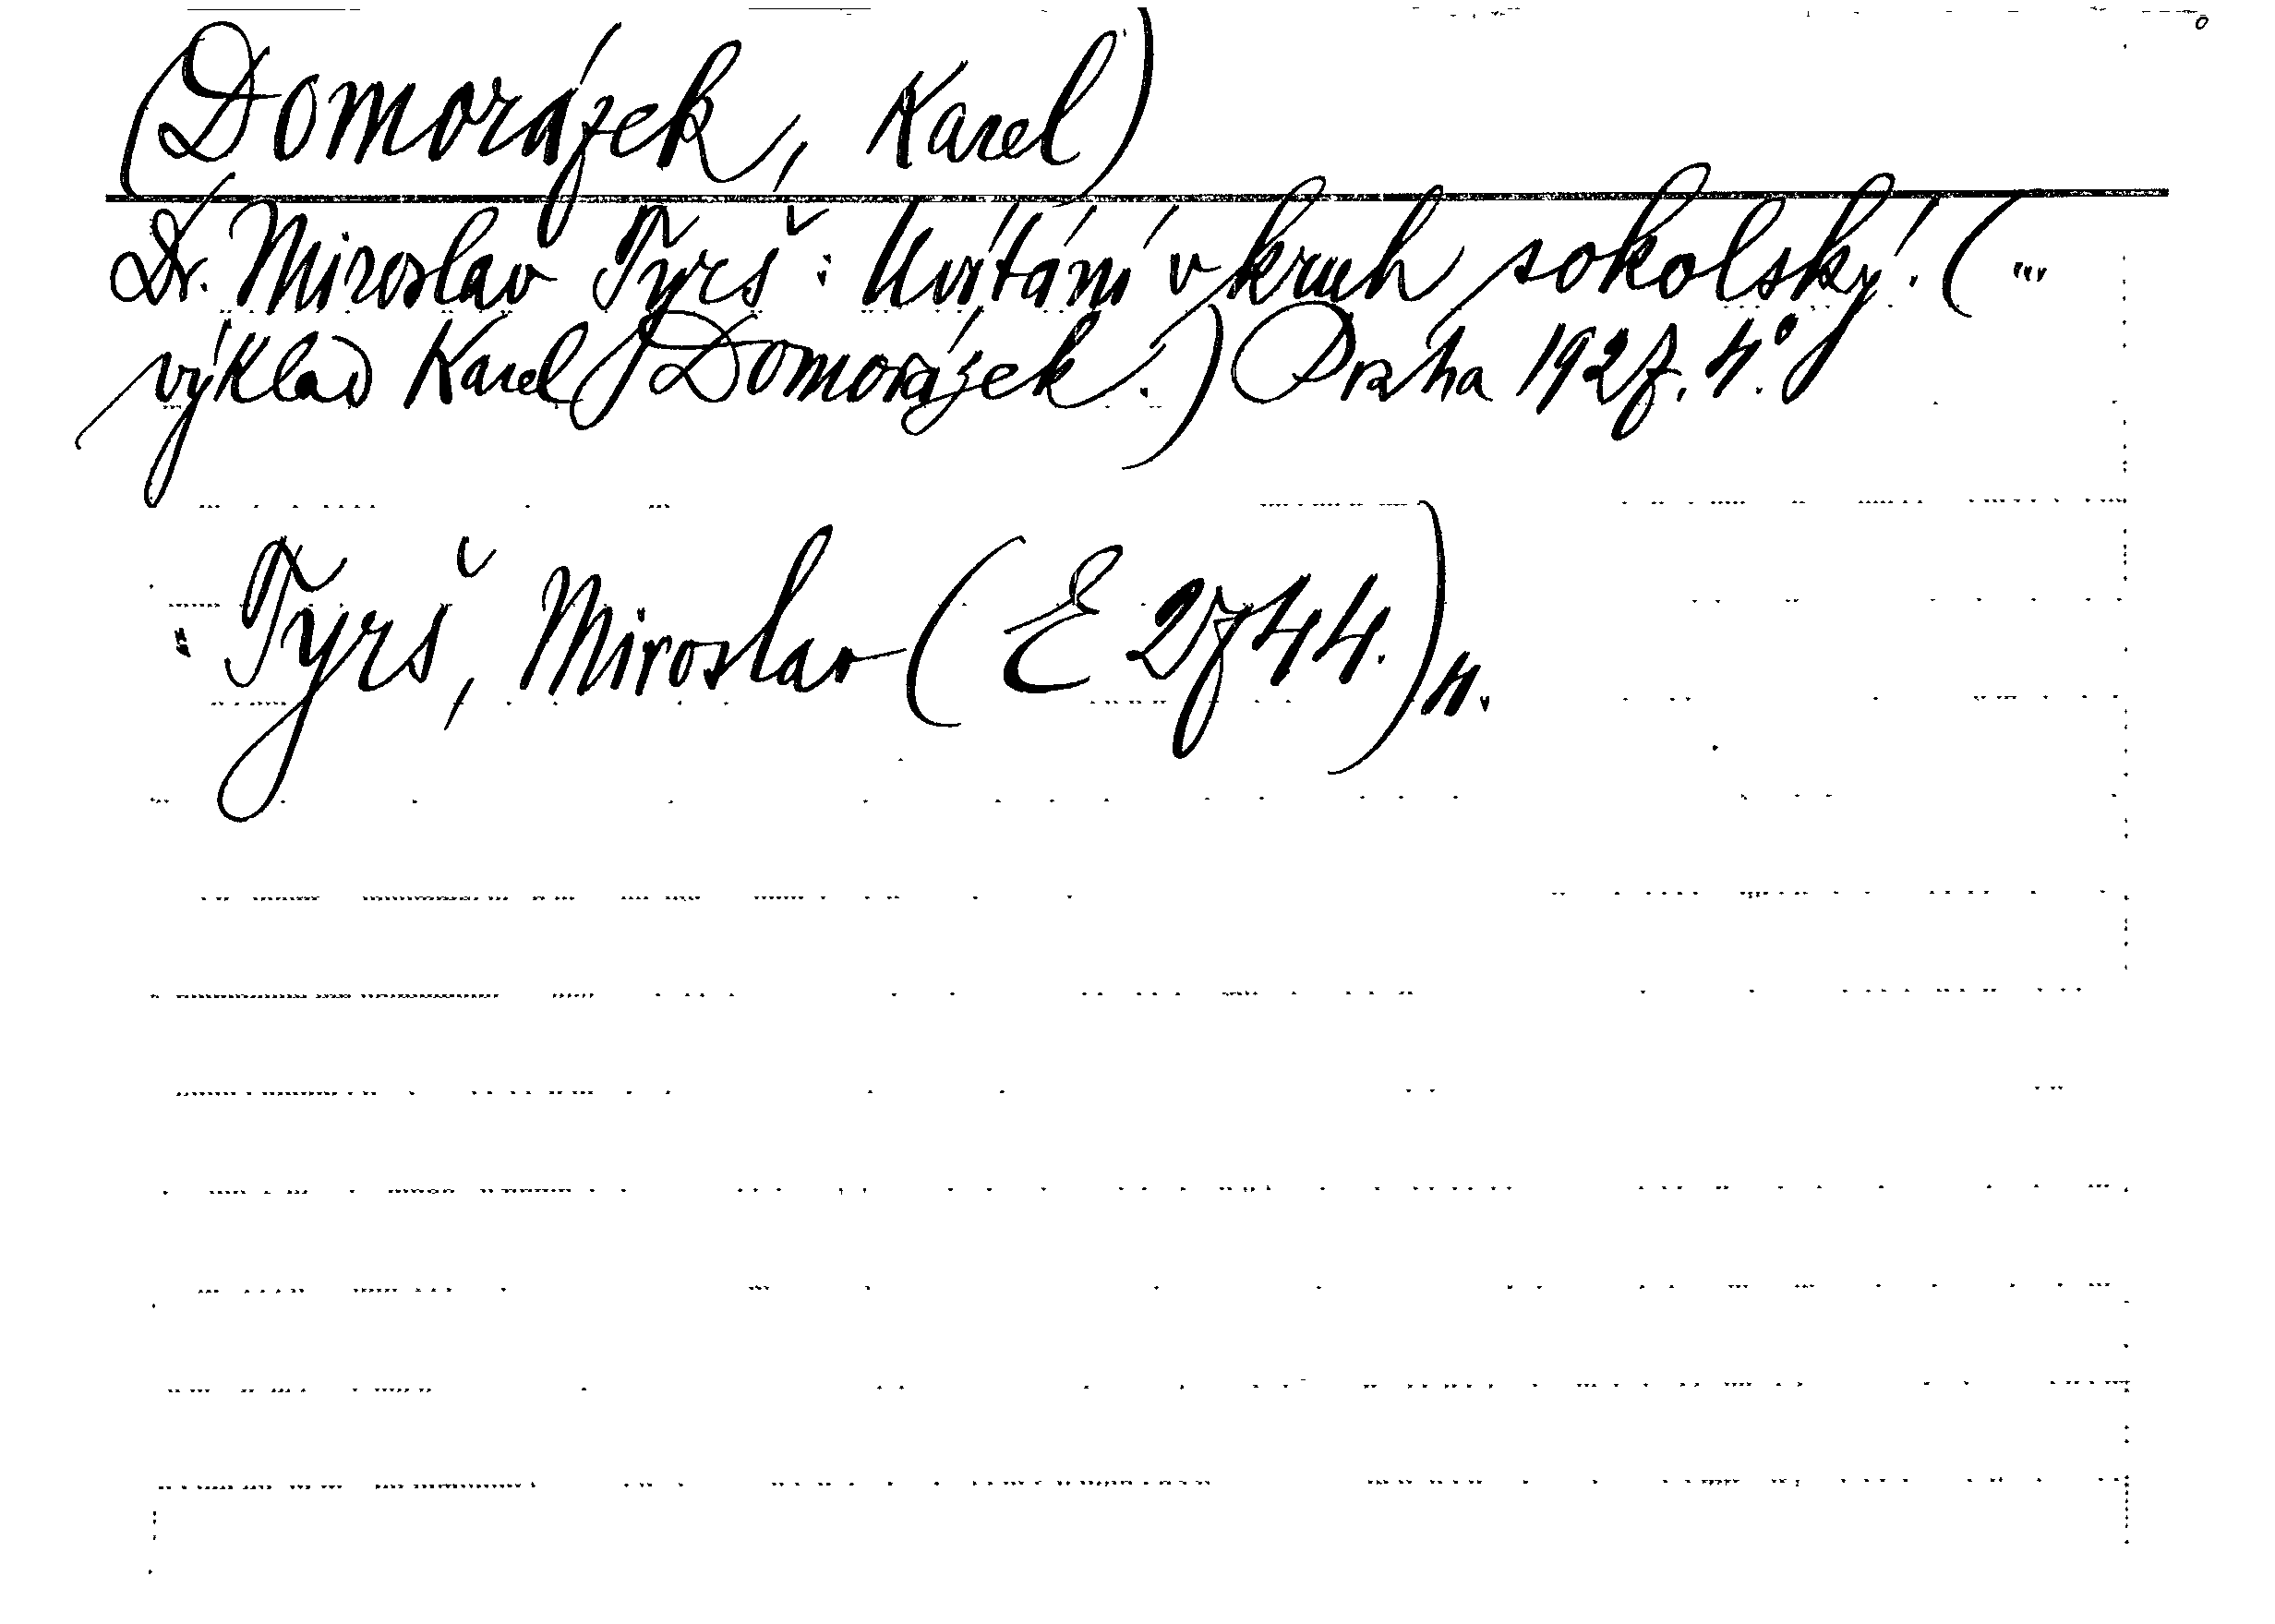 (Domorázek, Karel)
Dr. Miroslav Tyrš: Uvítání v kruh sokolský! (...
výklad Karel Domorázek.) Praha 1927. 4.°
: Tyrš, Miroslav (E 2744.) 4.